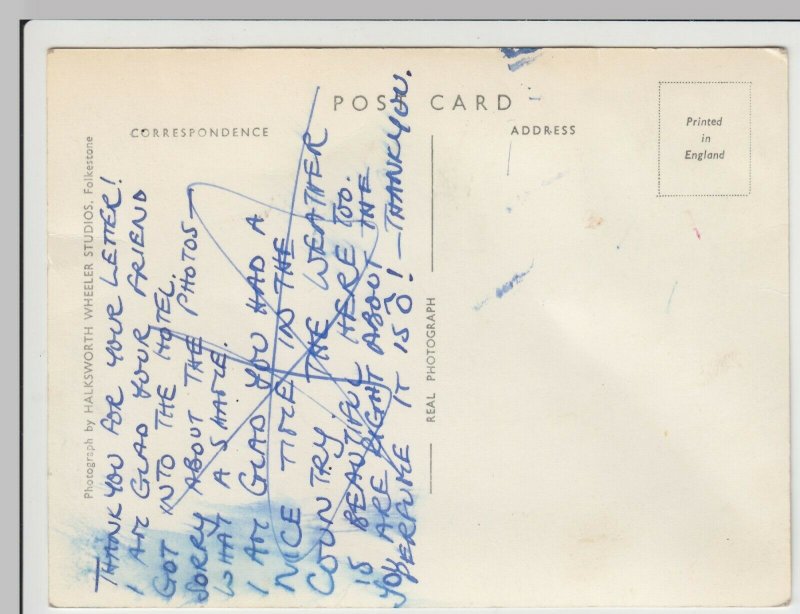 POST CARD
CORRESPONDENCE
ADDRESS
Printed
in
England
Photograph by HALKSWORTH WHEELER STUDIOS, Folkestone
REAL PHOTOGRAPH
THANK YOU FOR YOUR LETTER!
I AM GLAD YOUR FRIEND
GOT INTO THE HOTEL.
SORRY ABOUT THE PHOTOS—
WHAT A SHAME.
I AM GLAD YOU HAD A
NICE TIME IN THE
COUNTRY. THE WEATHER
IS BEAUTIFUL HERE TOO.
YOU ARE RIGHT ABOUT THE
PERFUME IT IS ! — THANK YOU.